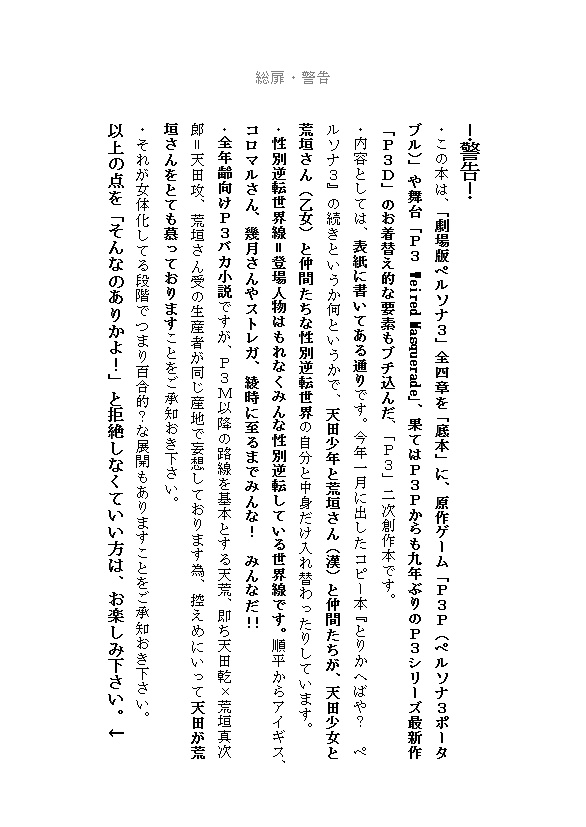 総扉・警告
―警告―
・この本は、「劇場版ペルソナ３」全四章を「底本」に、原作ゲーム「Ｐ３Ｐ（ペルソナ３ポータ
ブル）」や舞台「Ｐ３ Weired Masquerade」、果てはＰ３Ｐからも九年ぶりのＰ３シリーズ最新作
「Ｐ３Ｄ」のお着替え的な要素もブチ込んだ、「Ｐ３」二次創作本です。
・内容としては、表紙に書いてある通りです。今年一月に出したコピー本『とりかへばや？　ペ
ルソナ３』の続きというか何というかで、天田少年と荒垣さん（漢）と仲間たちが、天田少女と
荒垣さん（乙女）と仲間たちな性別逆転世界の自分と中身だけ入れ替わったりしています。
・性別逆転世界線＝登場人物はもれなくみんな性別逆転している世界線です。順平からアイギス、
コロマルさん、幾月さんやストレガ、綾時に至るまでみんな！　みんなだ!!
・全年齢向けＰ３バカ小説ですが、Ｐ３Ｍ以降の路線を基本とする天荒、即ち天田乾×荒垣真次
郎＝天田攻、荒垣さん受の生産者が同じ産地で妄想しております為、控えめにいって天田が荒
垣さんをとても慕っておりますことをご承知おき下さい。
・それが女体化してる段階でつまり百合的？な展開もありますことをご承知おき下さい。
以上の点を「そんなのありかよ！」と拒絶しなくていい方は、お楽しみ下さい。←